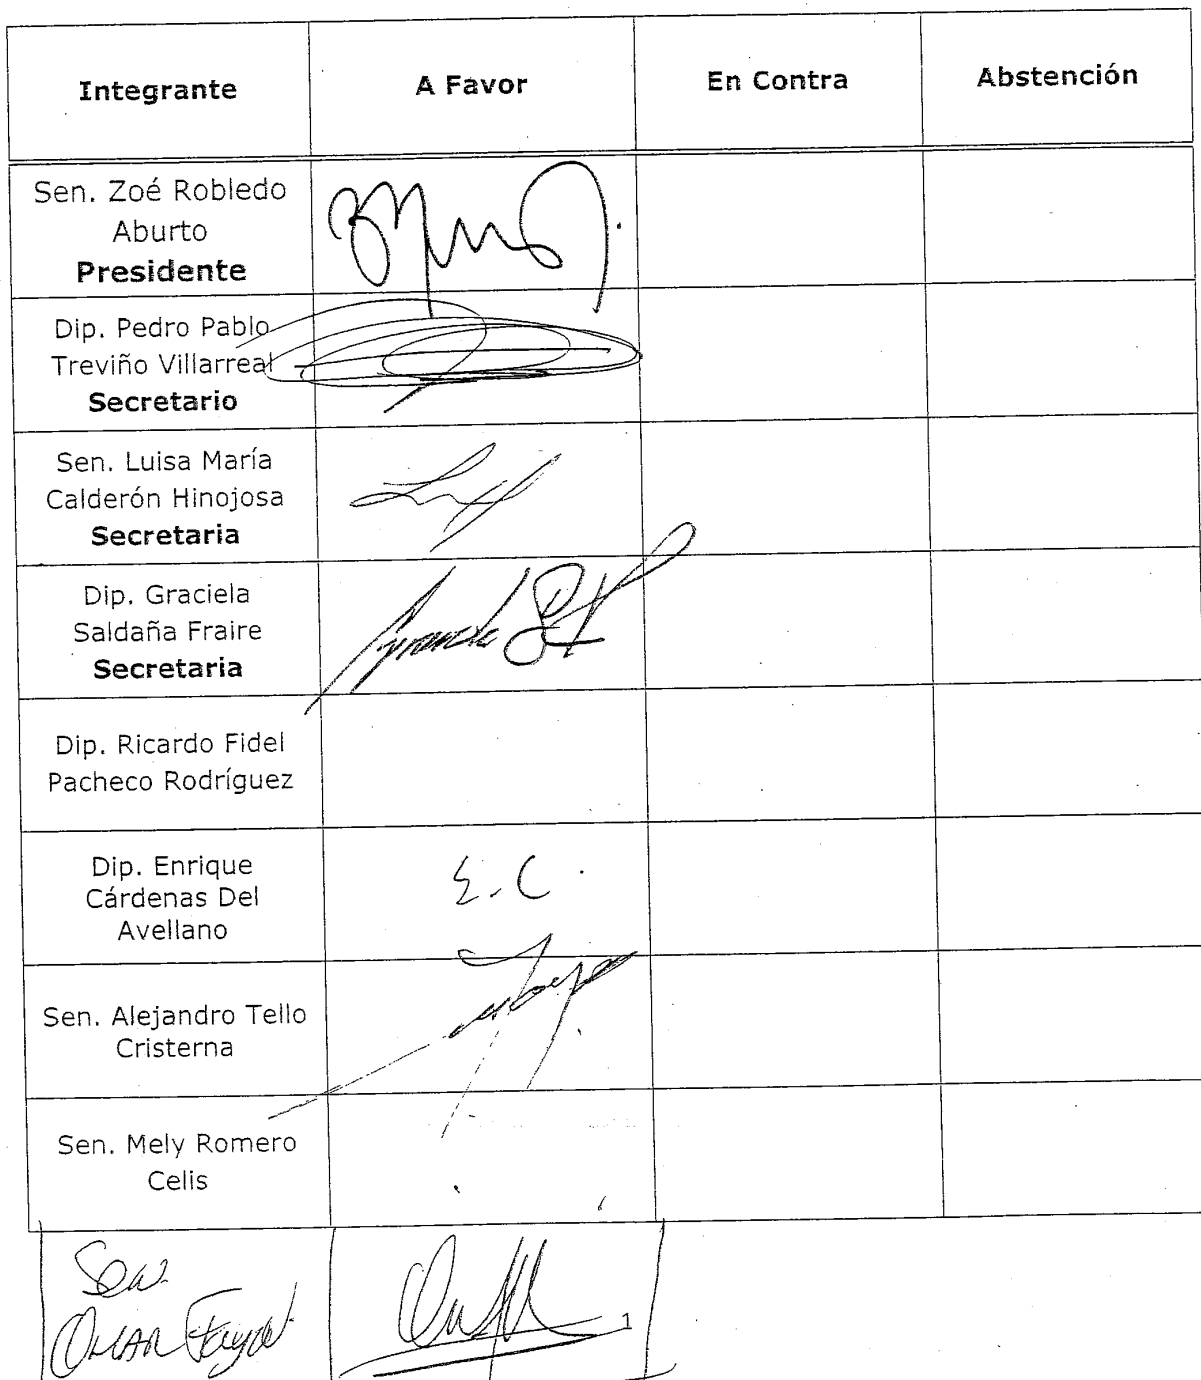 Integrante
A Favor
En Contra
Abstención
Sen. Zoé Robledo
Aburto
Presidente
Dip. Pedro Pablo
Treviño Villarreal
Secretario
Sen. Luisa María
Calderón Hinojosa
Secretaria
Dip. Graciela
Saldaña Fraire
Secretaria
Dip. Ricardo Fidel
Pacheco Rodríguez
Dip. Enrique
Cárdenas Del
Avellano
E. C.
Sen. Alejandro Tello
Cristerna
Sen. Mely Romero
Celis
Sen.
OMAR Fayad
1